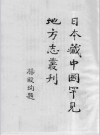 日本藏中國罕見
地方志叢刊